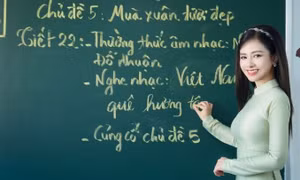 Chủ đề 5: Mùa xuân tươi đẹp
Tiết 22: - Thưởng thức âm nhạc: N
Đỗ Nhuận
- Nghe nhạc: Việt Na
quê hương tô
- Củng cố chủ đề 5